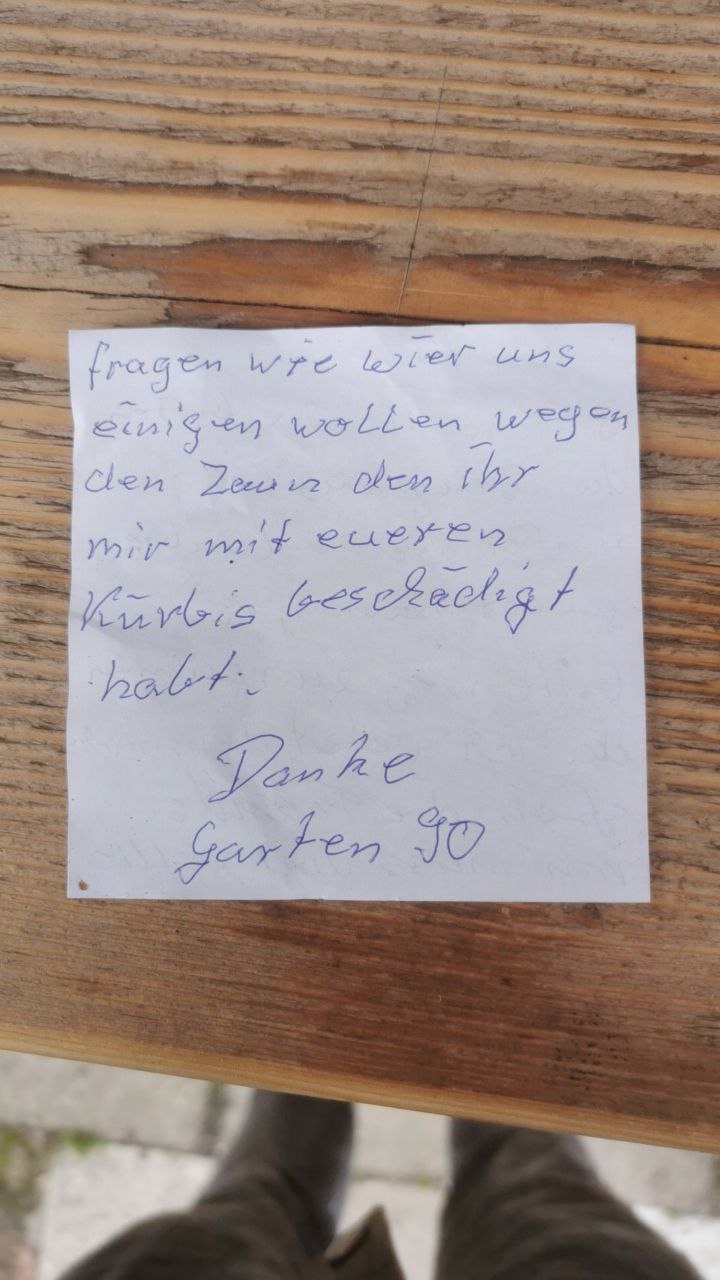 fragen wie wier uns
einigen wollen wegen
den Zaun den ihr
mir mit eueren
Kürbis beschädigt
habt.
Danke
Garten 90